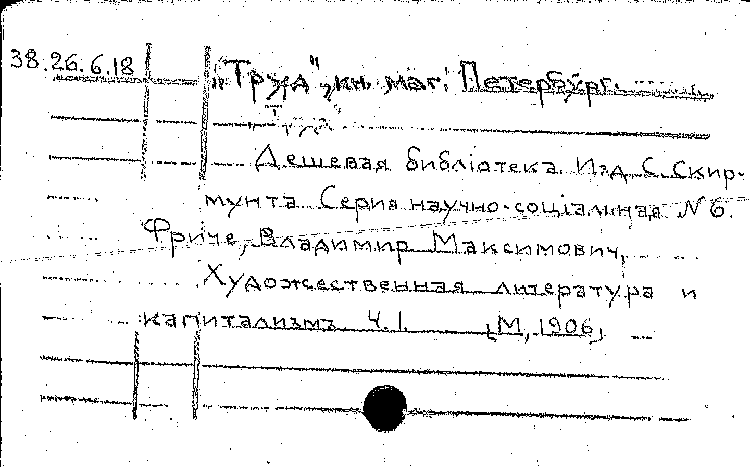 38.26.6.18 „Труд", кн. маг. Петербург.
„Труд"
Дешевая библіотека. Изд. С. Скир-
мунта. Серия научно-соціальная № 6.
Фриче, Владимир Максимович,
Художественная литература и
капитализмъ Ч. I. [М, 1906]